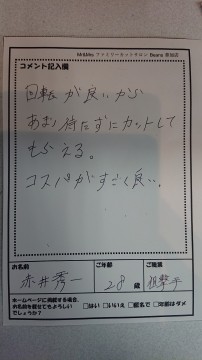 Mr&Mrs ファミリーカットサロン Beans
コメント記入欄
回転が良いから
あまり待たずにカットして
もらえる。
コスパがすごく良い。
お名前
ご年齢
ご職業
赤井秀一
28歳
狙撃手
ホームページに掲載する場合、
お名前を載せてもよろしい
でしょうか?
□はい □いいえ □匿名で □掲載はダメ